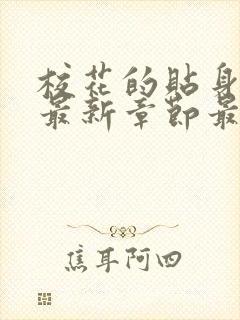 校花的贴身
最新章节最
焦耳阿四